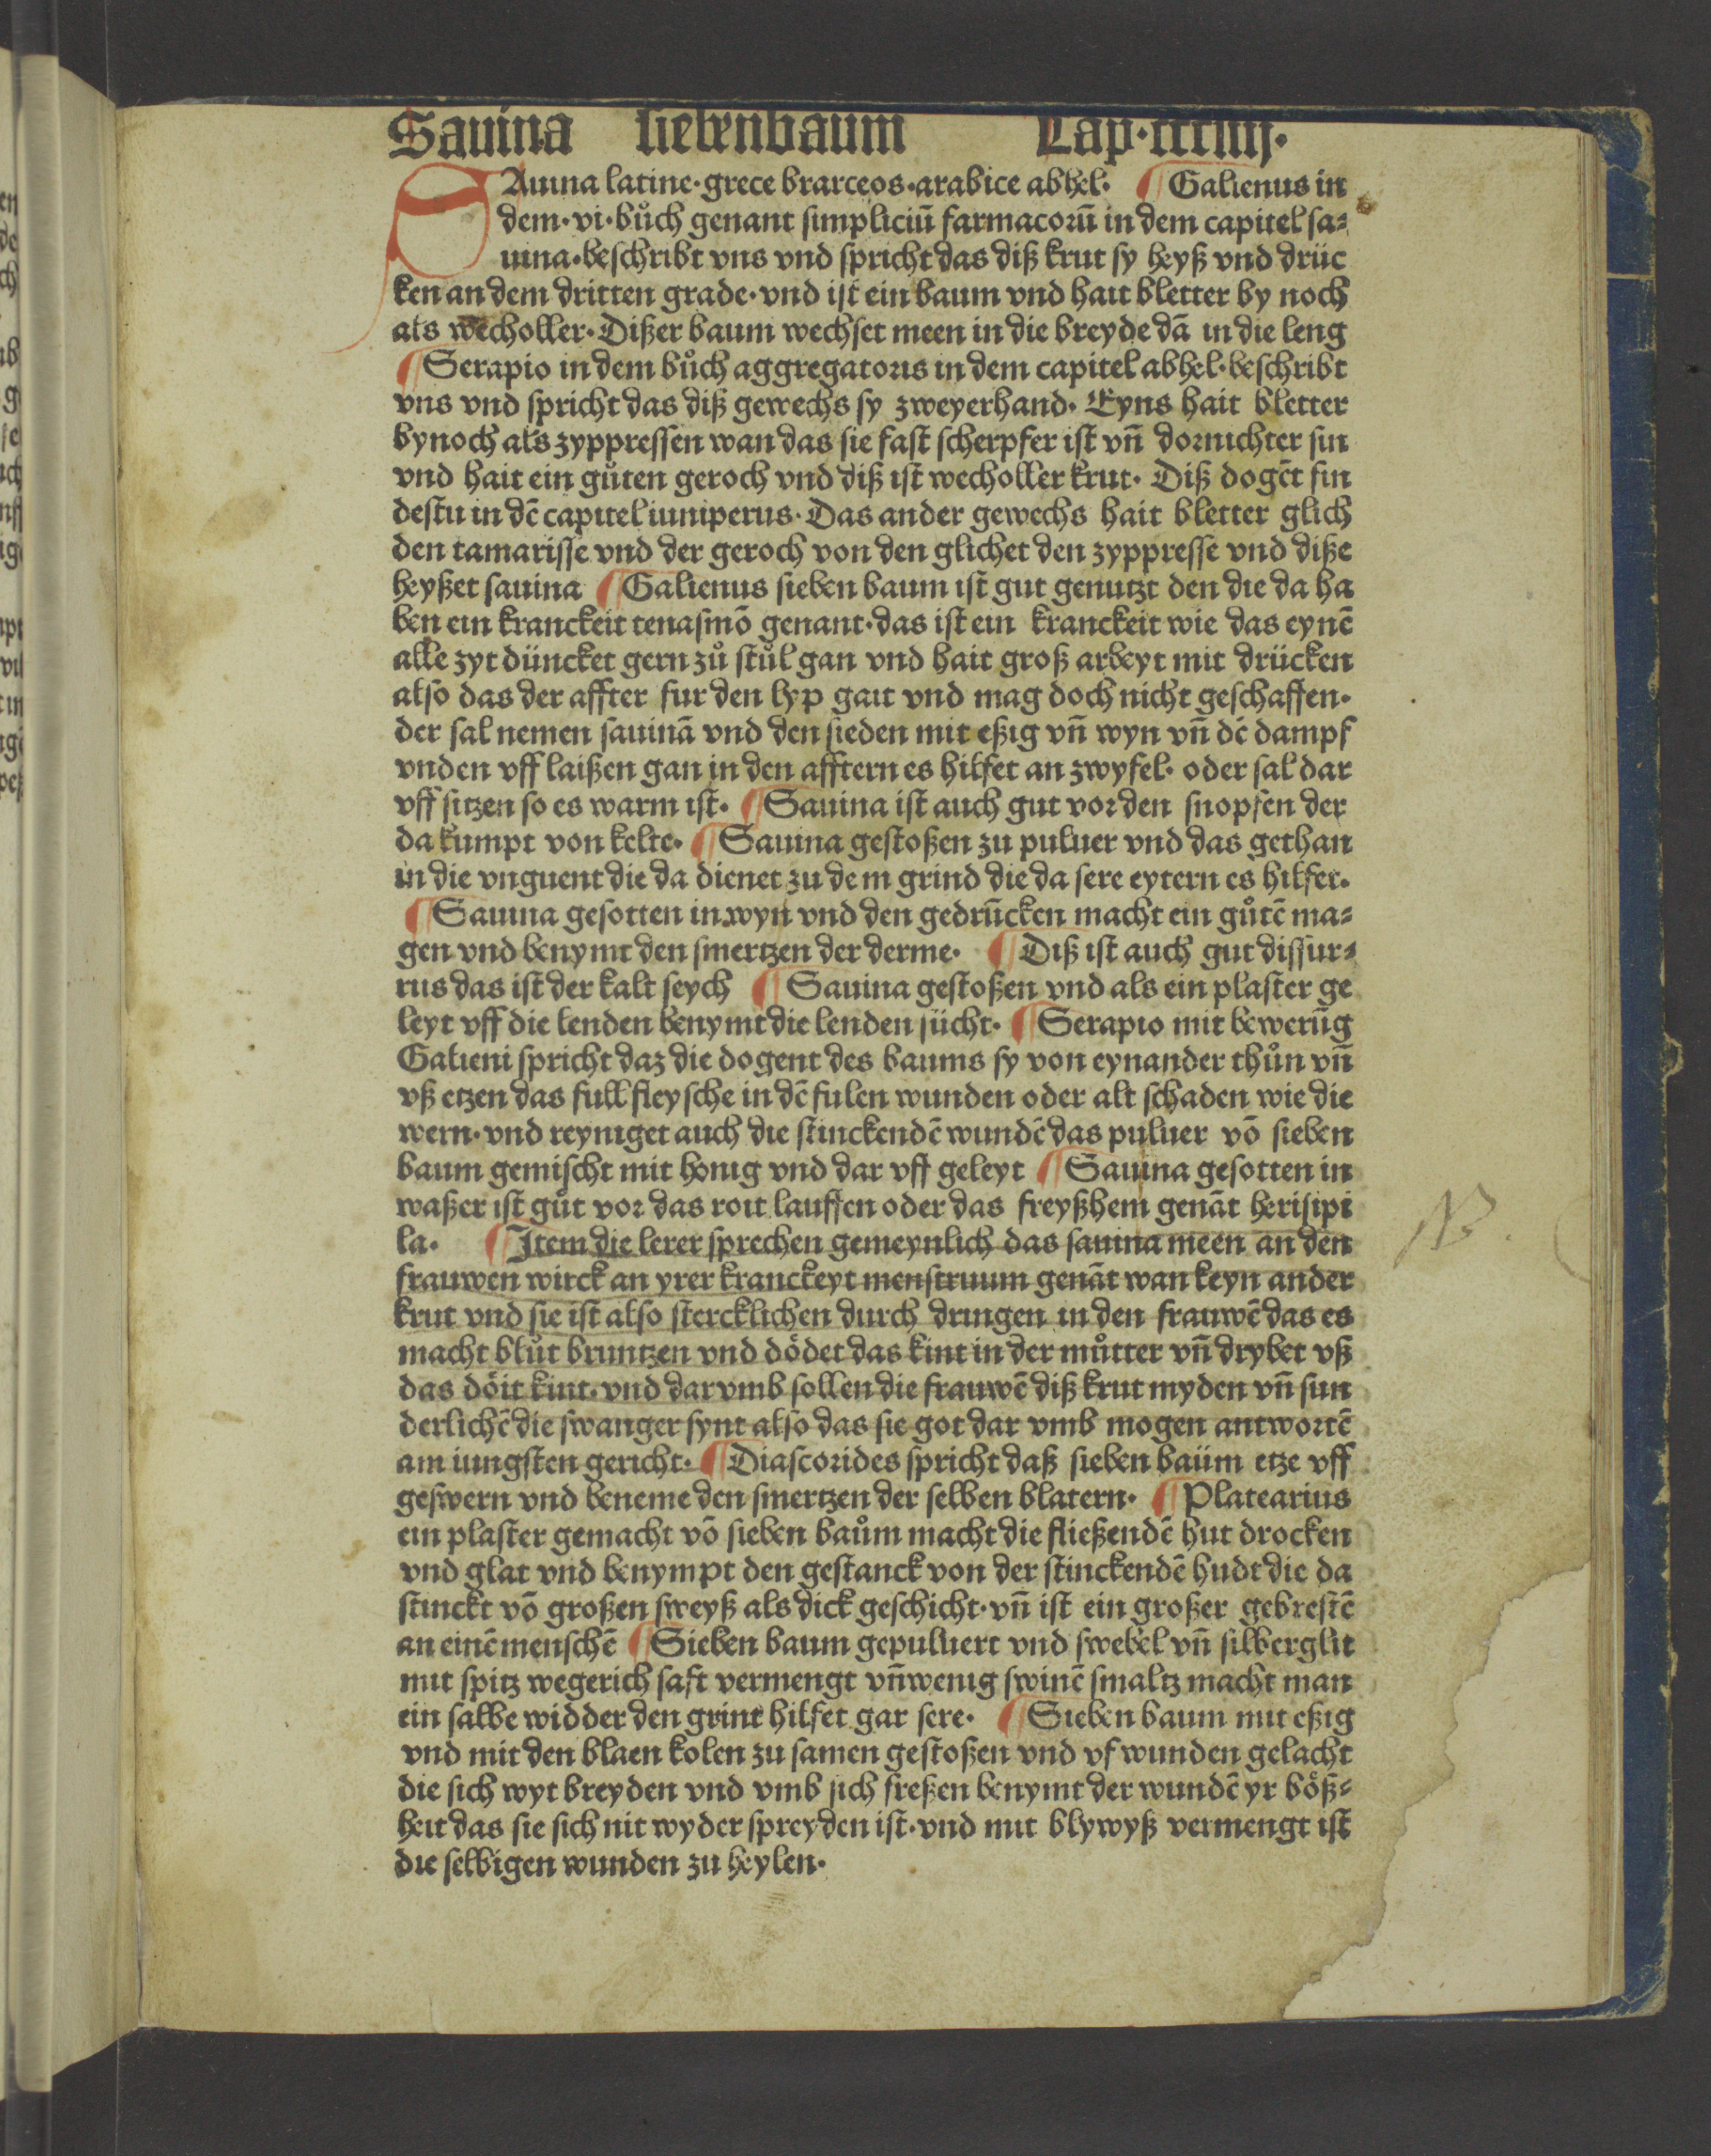 Sauina siebenbaum Cap·cccliiij·
SAuina latine·grece brarceos·arabice abhel· ¶ Galienus in
dem·vi·bůch genant simpliciū farmacorū in dem capitel sa⸗
uina·beschribt vns vnd spricht das diß krut sy heyß vnd drüc
ken an dem dritten grade·vnd ist ein baum vnd hait bletter by noch
als wecholler·Dißer baum wechset meen in die breyde dā in die leng
¶ Serapio in dem bůch aggregatoris in dem capitel abhel·beschribt
vns vnd spricht das diß gewechs sy zweyerhand· Eyns hait bletter
bynoch als zyppressen wan das sie fast scherpfer ist vñ dornichter sin
vnd hait ein gůten geroch vnd diß ist wecholler krut· Diß dogēt fin
destu in dē capitel iuniperus·Das ander gewechs hait bletter glich
den tamarisse vnd der geroch von den glichet den zyppresse vnd diße
heyßet sauina ¶ Galienus sieben baum ist gut genutzt den die da ha
ben ein kranckeit tenasmō genant·das ist ein kranckeit wie das eynē
alle zyt düncket gern zů stůl gan vnd hait groß arbeyt mit drücken
also das der affter fur den lyp gait vnd mag doch nicht geschaffen·
der sal nemen sauinā vnd den sieden mit eßig vñ wyn vñ dē dampf
vnden vff laißen gan in den afftern es hilfet an zwyfel· oder sal dar
vff sitzen so es warm ist· ¶ Sauina ist auch gut vor den snopfen der
da kumpt von kelte· ¶ Sauina gestoßen zu puluer vnd das gethan
in die vnguent die da dienet zu dem grind die da sere eytern es hilfer·
¶ Sauina gesotten in wyn vnd den gedrūcken macht ein gůtē ma⸗
gen vnd benymt den smertzen der derme· ¶ Diß ist auch gut dissur⸗
rus das ist der kalt seych ¶ Sauina gestoßen vnd als ein plaster ge
leyt vff die lenden benymt die lenden sücht· ¶ Serapio mit bewerūg
Galieni spricht daz die dogent des baums sy von eynander thůn vñ
vß etzen das full fleysche in dē fulen wunden oder alt schaden wie die
wern·vnd reyniget auch die stinckendē wundē das puluer vō sieben
baum gemischt mit honig vnd dar vff geleyt ¶ Sauina gesotten in
waßer ist gůt vor das roit lauffen oder das freyßhem genāt herisipi
la· ¶ Item die lerer sprechen gemeynlich das sauina meen an den
frauwen wirck an yrer kranckeyt menstruum genāt wan keyn ander
krut vnd sie ist also stercklichen durch dringen in den frauwē das es
macht blůt bruntzen vnd dödet das kint in der můtter vñ drybet vß
das döit kint·vnd dar vmb sollen die frauwē diß krut myden vñ sun
derlichē die swanger synt also das sie got dar vmb mogen antwortē
am iungsten gericht· ¶ Diascorides spricht daß sieben baüm etze vff
geswern vnd beneme den smertzen der selben blatern· ¶ Platearius
ein plaster gemacht vō sieben baům macht die fließendē hut drocken
vnd glat vnd benympt den gestanck von der stinckendē hudt die da
stinckt vō großen sweyß als dick geschicht·vñ ist ein großer gebrestē
an einē menschē ¶ Sieben baum gepuluert vnd swebel vñ silberglit
mit spitz wegerich saft vermengt vñ wenig swinē smaltz macht man
ein salbe widder den grint hilfet gar sere· ¶ Sieben baum mit eßig
vnd mit den blaen kolen zu samen gestoßen vnd vf wunden gelacht
die sich wyt breyden vnd vmb sich freßen benymt der wundē yr bößs⸗
heit das sie sich nit wyder spreyden ist·vnd mit blywyß vermengt ist
die selbigen wunden zu heylen·
NB.